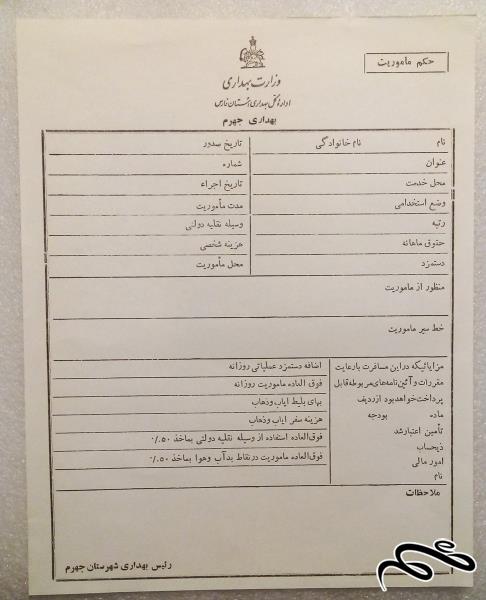 حکم ماموریت
وزارت بهداری
اداره کل بهداری استان فارس
بهداری جهرم
نام نام خانوادگی
عنوان
محل خدمت
وضع استخدامی
رتبه
حقوق ماهانه
دستمزد
تاریخ صدور
شماره
تاریخ اجراء
مدت مأموریت
وسیله نقلیه دولتی
هزینه شخصی
محل مأموریت
منظور از ماموریت
خط سیر ماموریت
مزایائیکه در این مسافرت با رعایت
مقررات و آئین‌نامه‌های مربوطه قابل
پرداخت خواهد بود از ردیف
ماده بودجه
تأمین اعتبار شد
ذیحساب
امور مالی
نام
اضافه دستمزد عملیاتی روزانه
فوق العاده ماموریت روزانه
بهای بلیط ایاب وذهاب
هزینه سفر ایاب وذهاب
فوق‌العاده استفاده از وسیله نقلیه دولتی بماخذ ۵۰٪
فوق‌العاده ماموریت در نقاط بدآب وهوا بماخذ ۵۰٪
ملاحظات
رئیس بهداری شهرستان جهرم